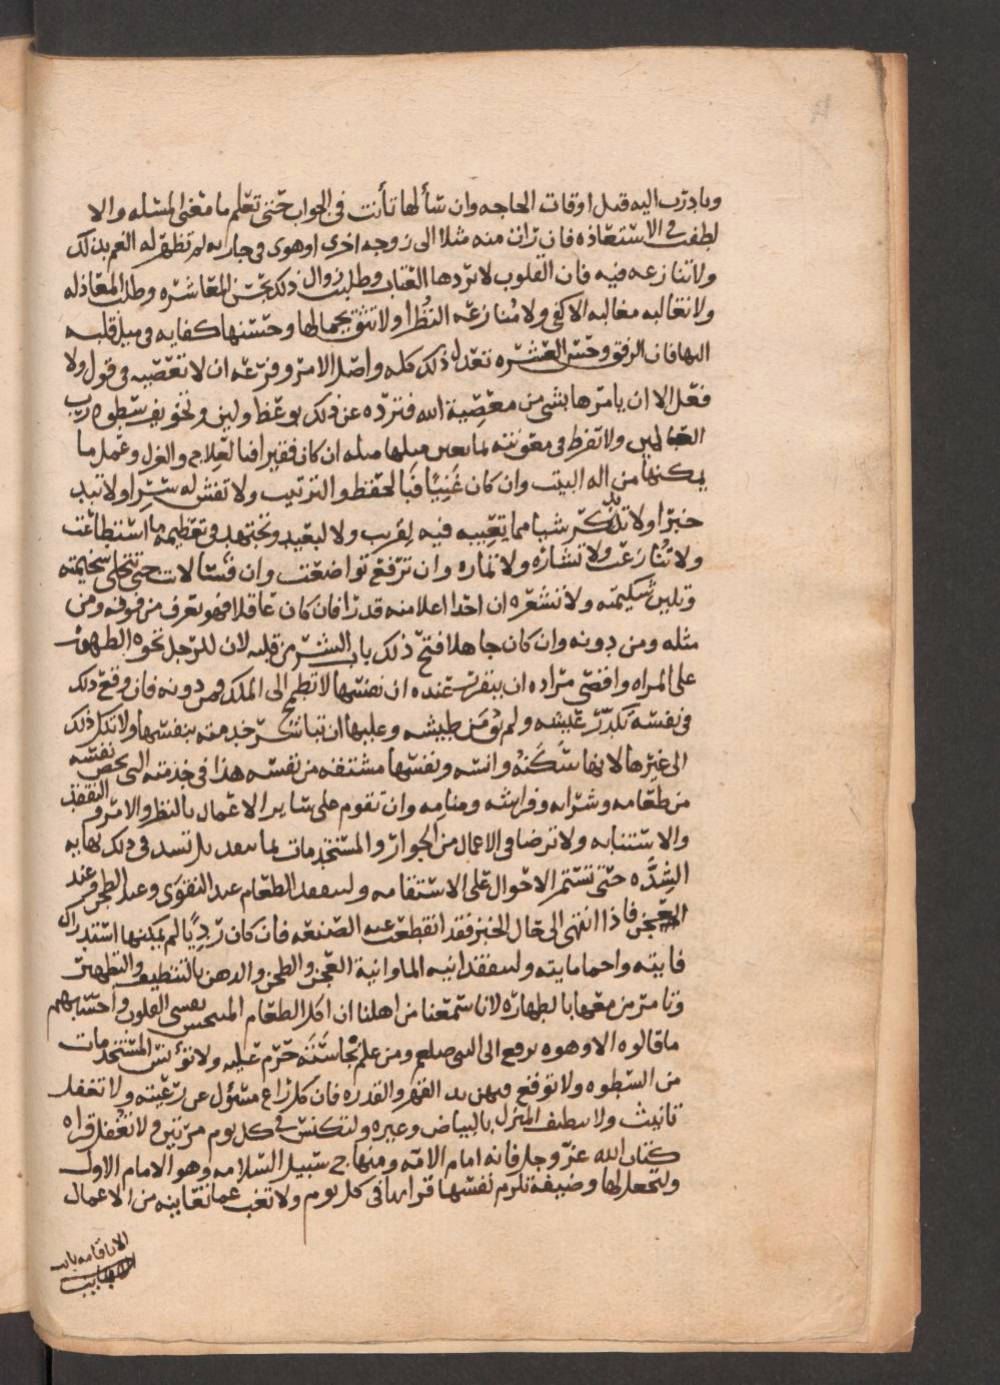 وبادرت اليه قبل اوقات الحاجه وان سألها تأنت في الجواب حتى تعلم ما معنى المسله والا
لطفت في الاستعاذه فان رات منه مثلا الى زوجه اخرى اوهوى في جاريه لم تظهر له الغم بذلك
ولاتنازعه فيه فان القلوب لا تردها العتاب وطلبت زوال ذلك بحسن المعاشره وطلب المعاذله
ولا تغالبه مغالبه الاكفى ولا منازعه النظرا ولا تثق بجمالها وحسنها كفايه في ميل قلبه
اليها فان الرفق وحسن العشره تعدل ذلك كله واصل الامر وفرعه ان لا تعصيه في قول ولا
فعل الا ان يامرها بشي من معصية الله فترده عن ذلك بوعظ ولين وتخويف سطوه رب
العالمين ولا تفرط في معونته بما يعين مثلها مثله ان كان فقيرا فبالعلاج والغزل وعمل ما
يمكنها من اله البيت وان كان غنيا فبالحفظ والترتيب ولا تفش له سرا ولا تبد
خبرا ولا تذكر شيا مما يعيبه فيه لقريب ولا لبعيد وتجتهد في تعظيمه ما استطاعت
ولا تنازعه ولا تشاره ولا تماره وان ترفع تواضعت وان قسا لانت حتى تنجلي سخيمته
وتلين شكيمته ولا تشعره ان احدا اعلا منه قدرا فان كان عاقلا فهو يعرف من فوقه ومن
مثله ومن دونه وان كان جاهلا فتح ذلك باب الشر من قلبه لان للرجل نخوه الظهور
على المراه واقصى مراده ان يتقرر عنده ان نفسها لا تطمح الى الملك ومن دونه فان وقع ذلك
في نفسه تكدر عيشه ولم يؤمن طيشه وعليها ان تباشر خدمته بنفسها ولا تكل ذلك
الى غيرها لانها سكنه وانسه ونفسها مشتقه من نفسه هذا في خدمته التي تخص نفسه
من طعامه وشرابه وفراشه ومنامه وان تقوم على ساير الاعمال بالنظر والامر والتفقد
والاستنابه ولا ترضا في الاعمال من الجوار والمستخدمات بما بل تسد في ذلك نهايه
الشده حتى تستمر الاحوال على الاستقامه ولتتفقد الطعام عند التقوى وعند الطحن وعند
العجن فاذا انتهى الى حال الخبز فقد انقطعت عنه الصنعه فان كان رديا لم يمكنها استدراك
فايته واحما مايته ولتتفقد انيه الما وانية العجن والطحن والدهن بالتنظيف والتطهير
وتامر من معها بالطهاره لانا سمعنا من اهلنا ان اكل الطعام المتنجس يقسي القلوب واحسبهم
ما قالوه الا وهوه يرفع الى النبي صلعم ومن علم نجاسته حرم عليه ولا تؤنس المستخدمات
من السطوه ولا توقع فيهن يد القهر والقدره فان كل راع مسئول عن رعيته ولا تغفل
تاثيث ولا تنظيف المنزل بالبياض وغيره ولتكنس في كل يوم مرتين ولا تغفل قراه
كتاب الله عز وجل فانه امام الامه ومنهاج سبيل السلامه وهو الامام الاول
ولتجعل لها وضيفة تلزم نفسها قراتها في كل يوم ولا تغب عما تعاينه من الاعمال
الا باقامه باب